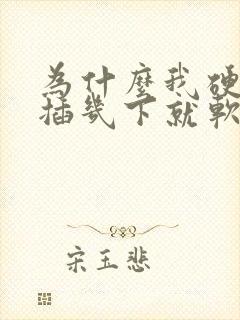 為什麼我硬
插幾下就軟
宋玉悲